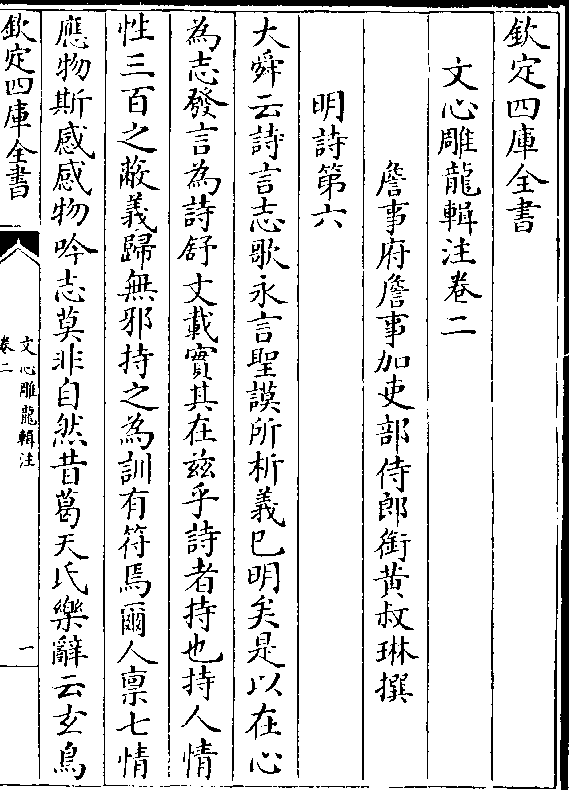 欽定四庫全書
文心雕龍輯注卷二
詹事府詹事加吏部侍郎銜黃叔琳撰
明詩第六
大舜云詩言志歌永言聖謨所析義已明矣是以在心
為志發言為詩舒文載實其在茲乎詩者持也持人情
性三百之蔽義歸無邪持之為訓有符焉爾人禀七情
應物斯感感物吟志莫非自然昔葛天氏樂辭云玄鳥
欽定四庫全書
文心雕龍輯注
卷二
一